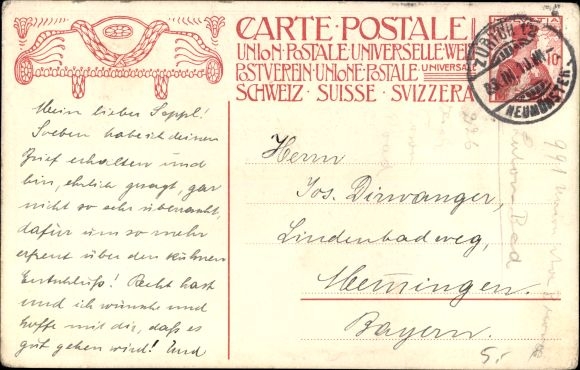 CARTE·POSTALE
UNION·POSTALE·UNIVERSELLE·WELT
POSTVEREIN·UNIONE·POSTALE UNIVERSALE
SCHWEIZ·SUISSE·SVIZZERA
ZÜRICH 12
NEUMÜNSTER
10
Mein lieber Seppl!
Soeben habe ich deinen
Brief erhalten und
bin, ehrlich gesagt, gar
nicht so sehr überrascht,
dafür um so mehr
erfreut über den kühnen
Entschluß! Recht hast
und ich wünsche und
hoffe mit dir, daß es
gut gehen wird! Und
Herrn
Jos. Dirwanger,
Lindenbadweg,
Memmingen.
Bayern.
5.-
226